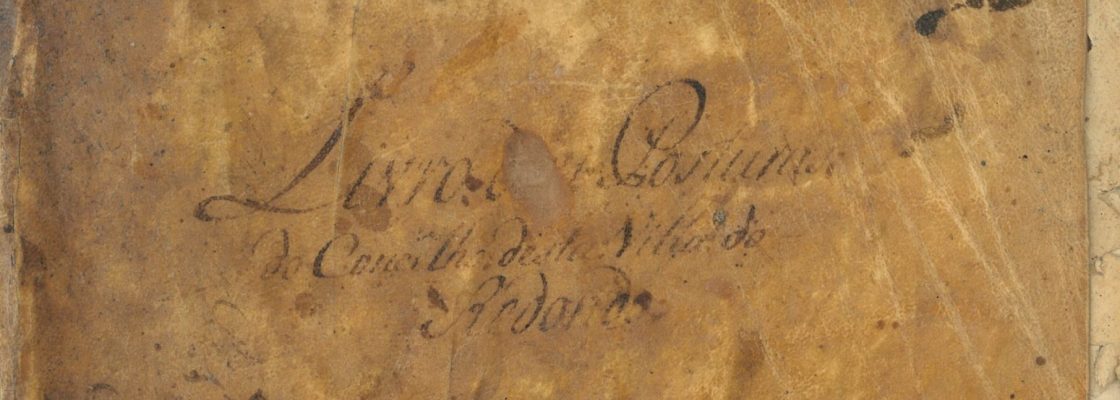 Livro. Posturas
do Concelho desta Villa do
Redondo